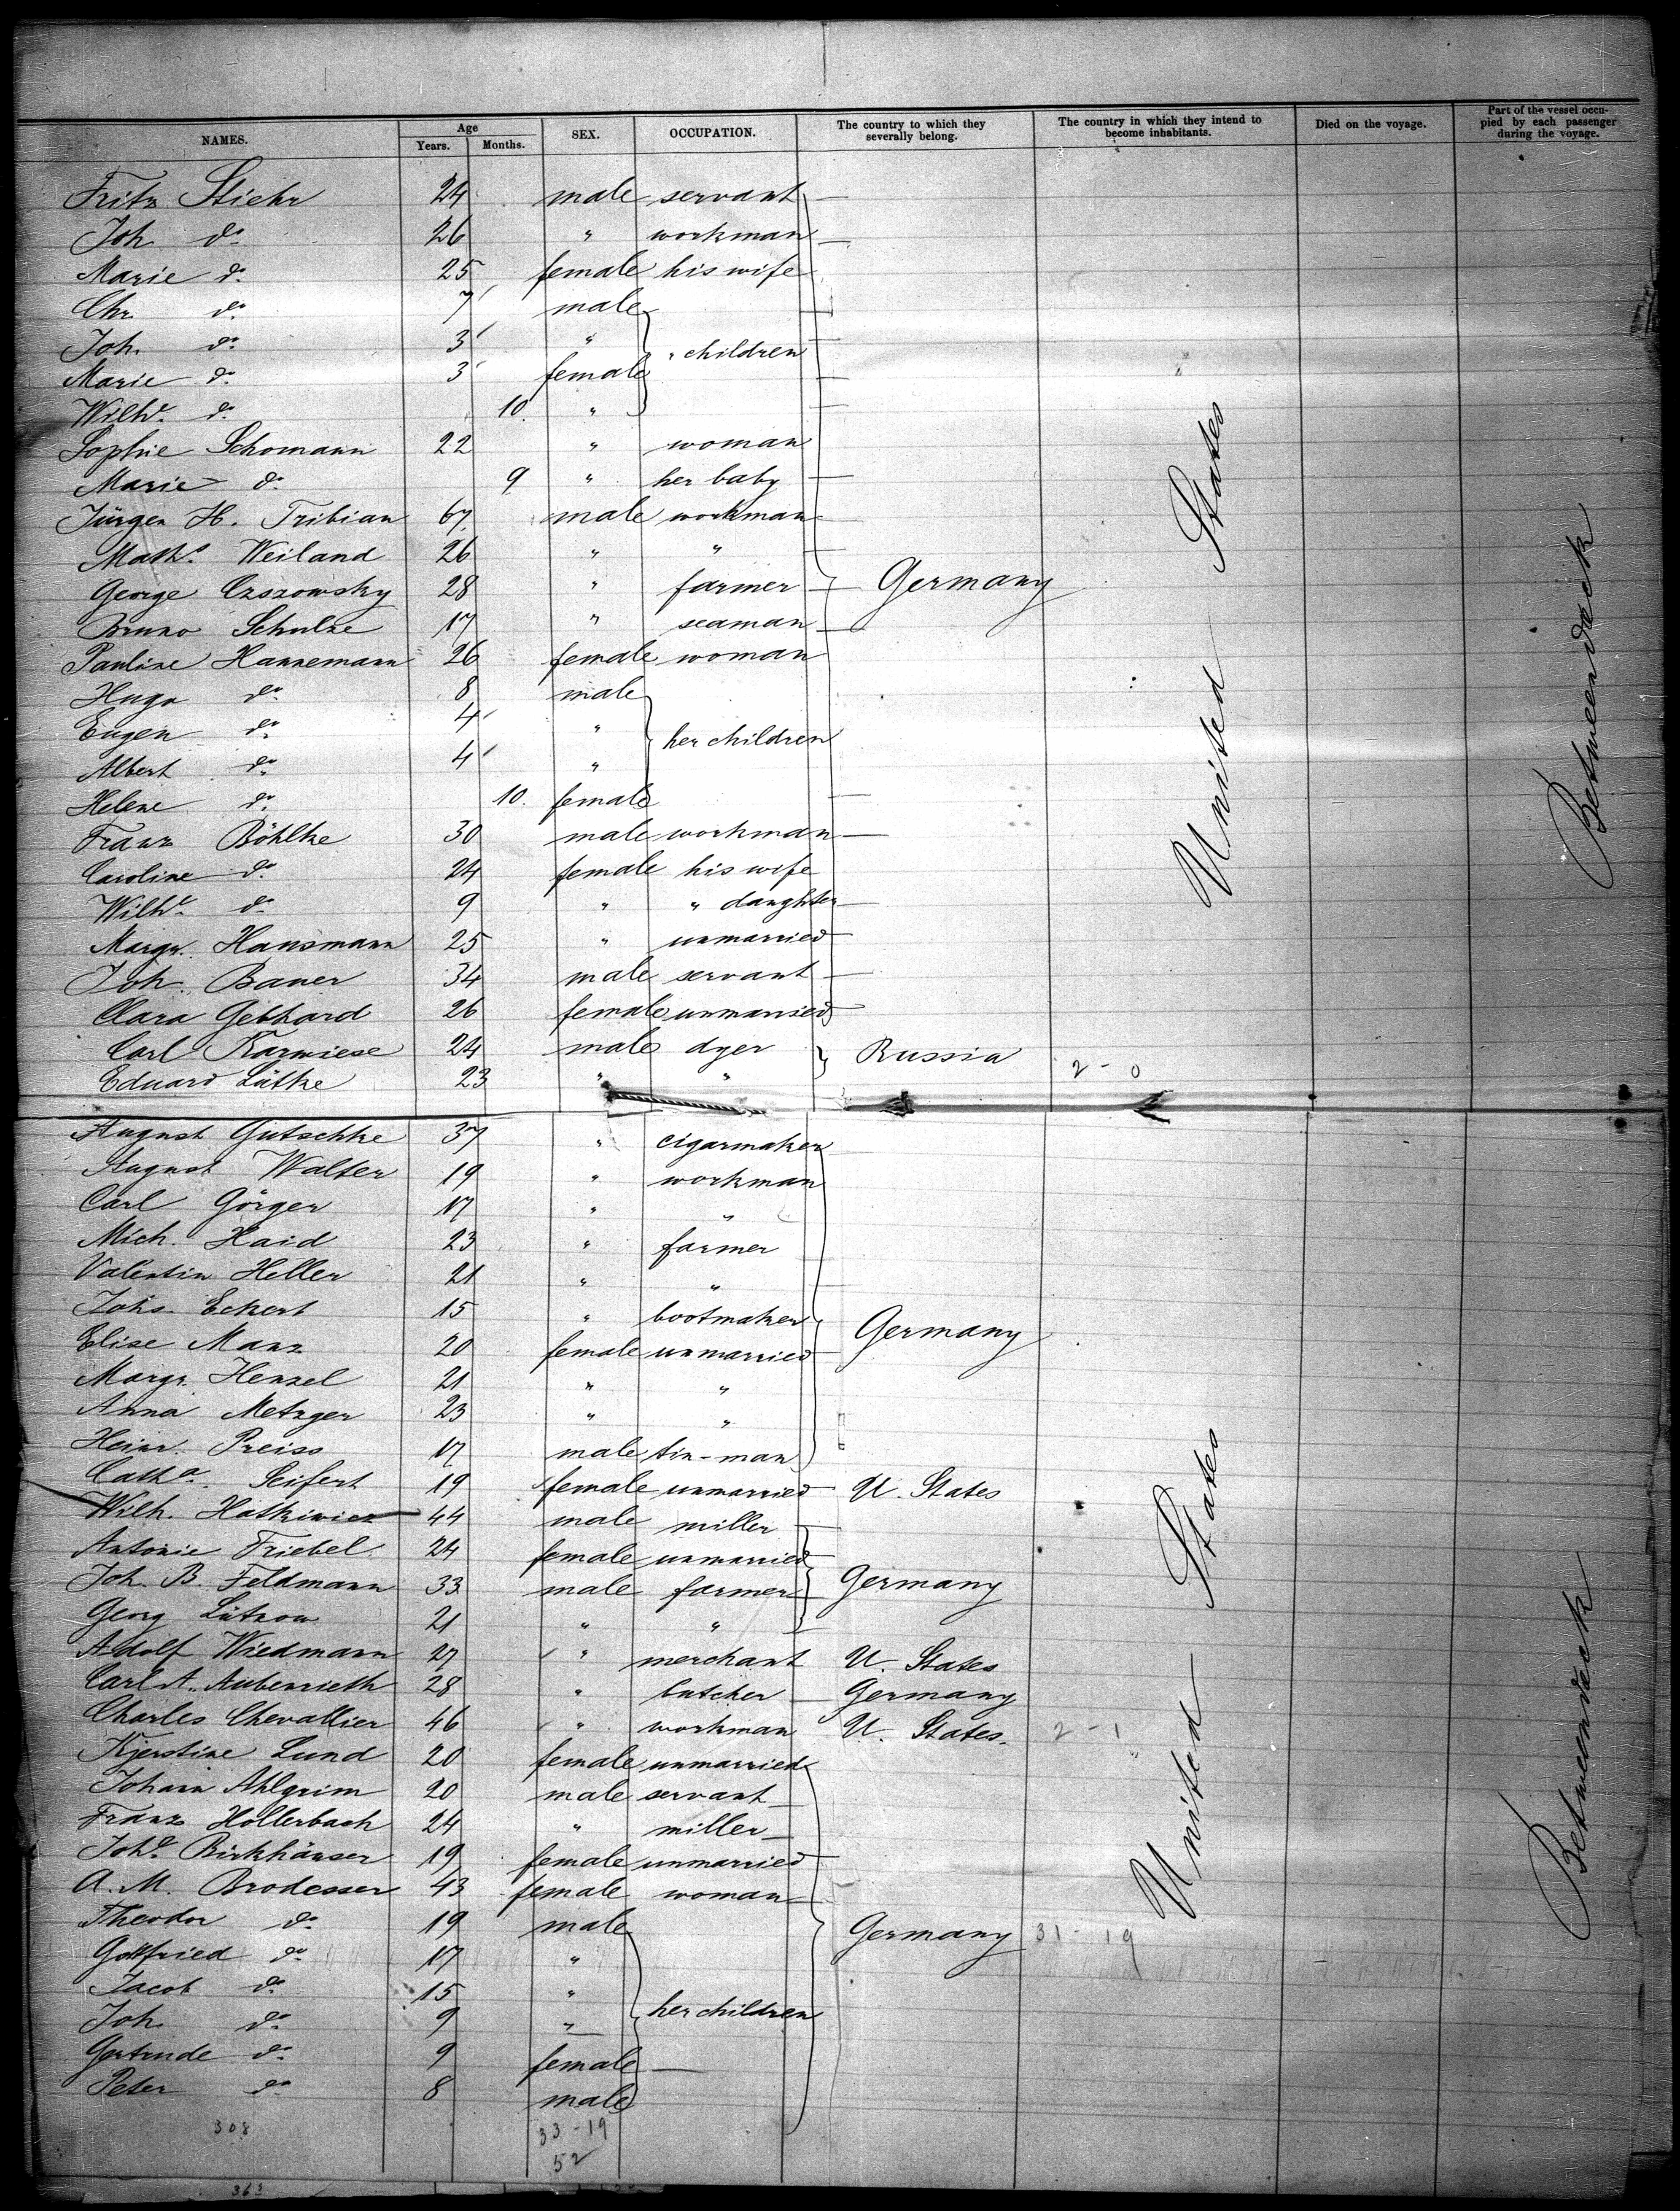 NAMES. Age Years. Months. SEX. OCCUPATION. The country to which they severally belong. The country in which they intend to become inhabitants. Died on the voyage. Part of the vessel occupied by each passenger during the voyage.
Fritz Stiehr 24 male servant
Joh. do 26 " workman
Marie do 25 female his wife
Chr. do 7 male
Joh. do 3 " " children
Marie do 3 female
Wilhe. do 10 "
Sophie Schomann 22 " woman
Marie do 9 " her baby
Jürgen H. Tribian 67 male workman
Maths. Weiland 26 " "
George Czszowsky 28 " farmer Germany
Bruno Schulze 17 " seaman
Pauline Hannemann 26 female woman
Hugo do 8 male
Eugen do 4 " her children
Albert do 4 "
Helene do 10. female
Franz Böhlke 30 male workman
Caroline do 24 female his wife
Wilhe. do 9 " " daughter
Margr. Hansmann 25 " unmarried
Joh. Bauer 34 male servant
Clara Gebhard 26 female unmarried
Carl Karwiese 24 male dyer Russia 2 - 0
Eduard Lütke 23 " "
United States
Betweendeck
August Gutschke 37 " cigarmaker
August Walter 19 " workman
Carl Görger 17 " "
Mich. Haid 23 " farmer
Valentin Heller 21 " "
Johs. Eckert 15 " bootmaker Germany
Elise Manz 20 female unmarried
Margr. Henzel 21 " "
Anna Metzger 23 " "
Heinr. Preiss 17 male tin-man
Catha. Seifert 19 female unmarried U. States
Wilh. Hatkiwicz 44 male miller
Antonie Friebel 24 female unmarried
Joh. B. Feldmann 33 male farmer Germany
Georg Lützow 21 " "
Adolf Wiedmann 27 " merchant U. States
Carl A. Aubenrieth 28 " butcher Germany
Charles Chevallier 46 " workman U. States. 2 - 1
Kjerstine Lund 20 female unmarried
Johann Ahlgrim 20 male servant
Franz Hollerbach 24 " miller
Johe. Birkhäuser 19 female unmarried
A. M. Brodesser 43 female woman
Theodor do 19 male Germany 31 - 19
Gottfried do 17 "
Jacob do 15 "
Joh. do 9 " her children
Gertrude do 9 female
Peter do 8 male
United States
Betweendeck
308 33 - 19
52
363